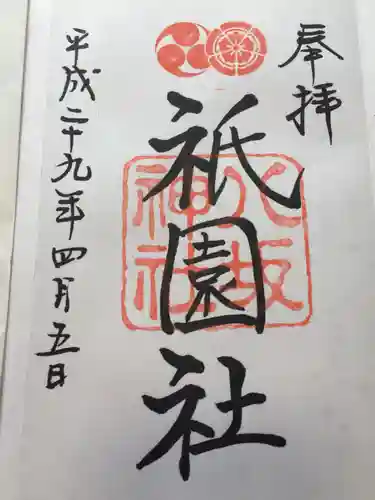 奉拝
八坂
神社
祇園社
平成二十九年四月五日